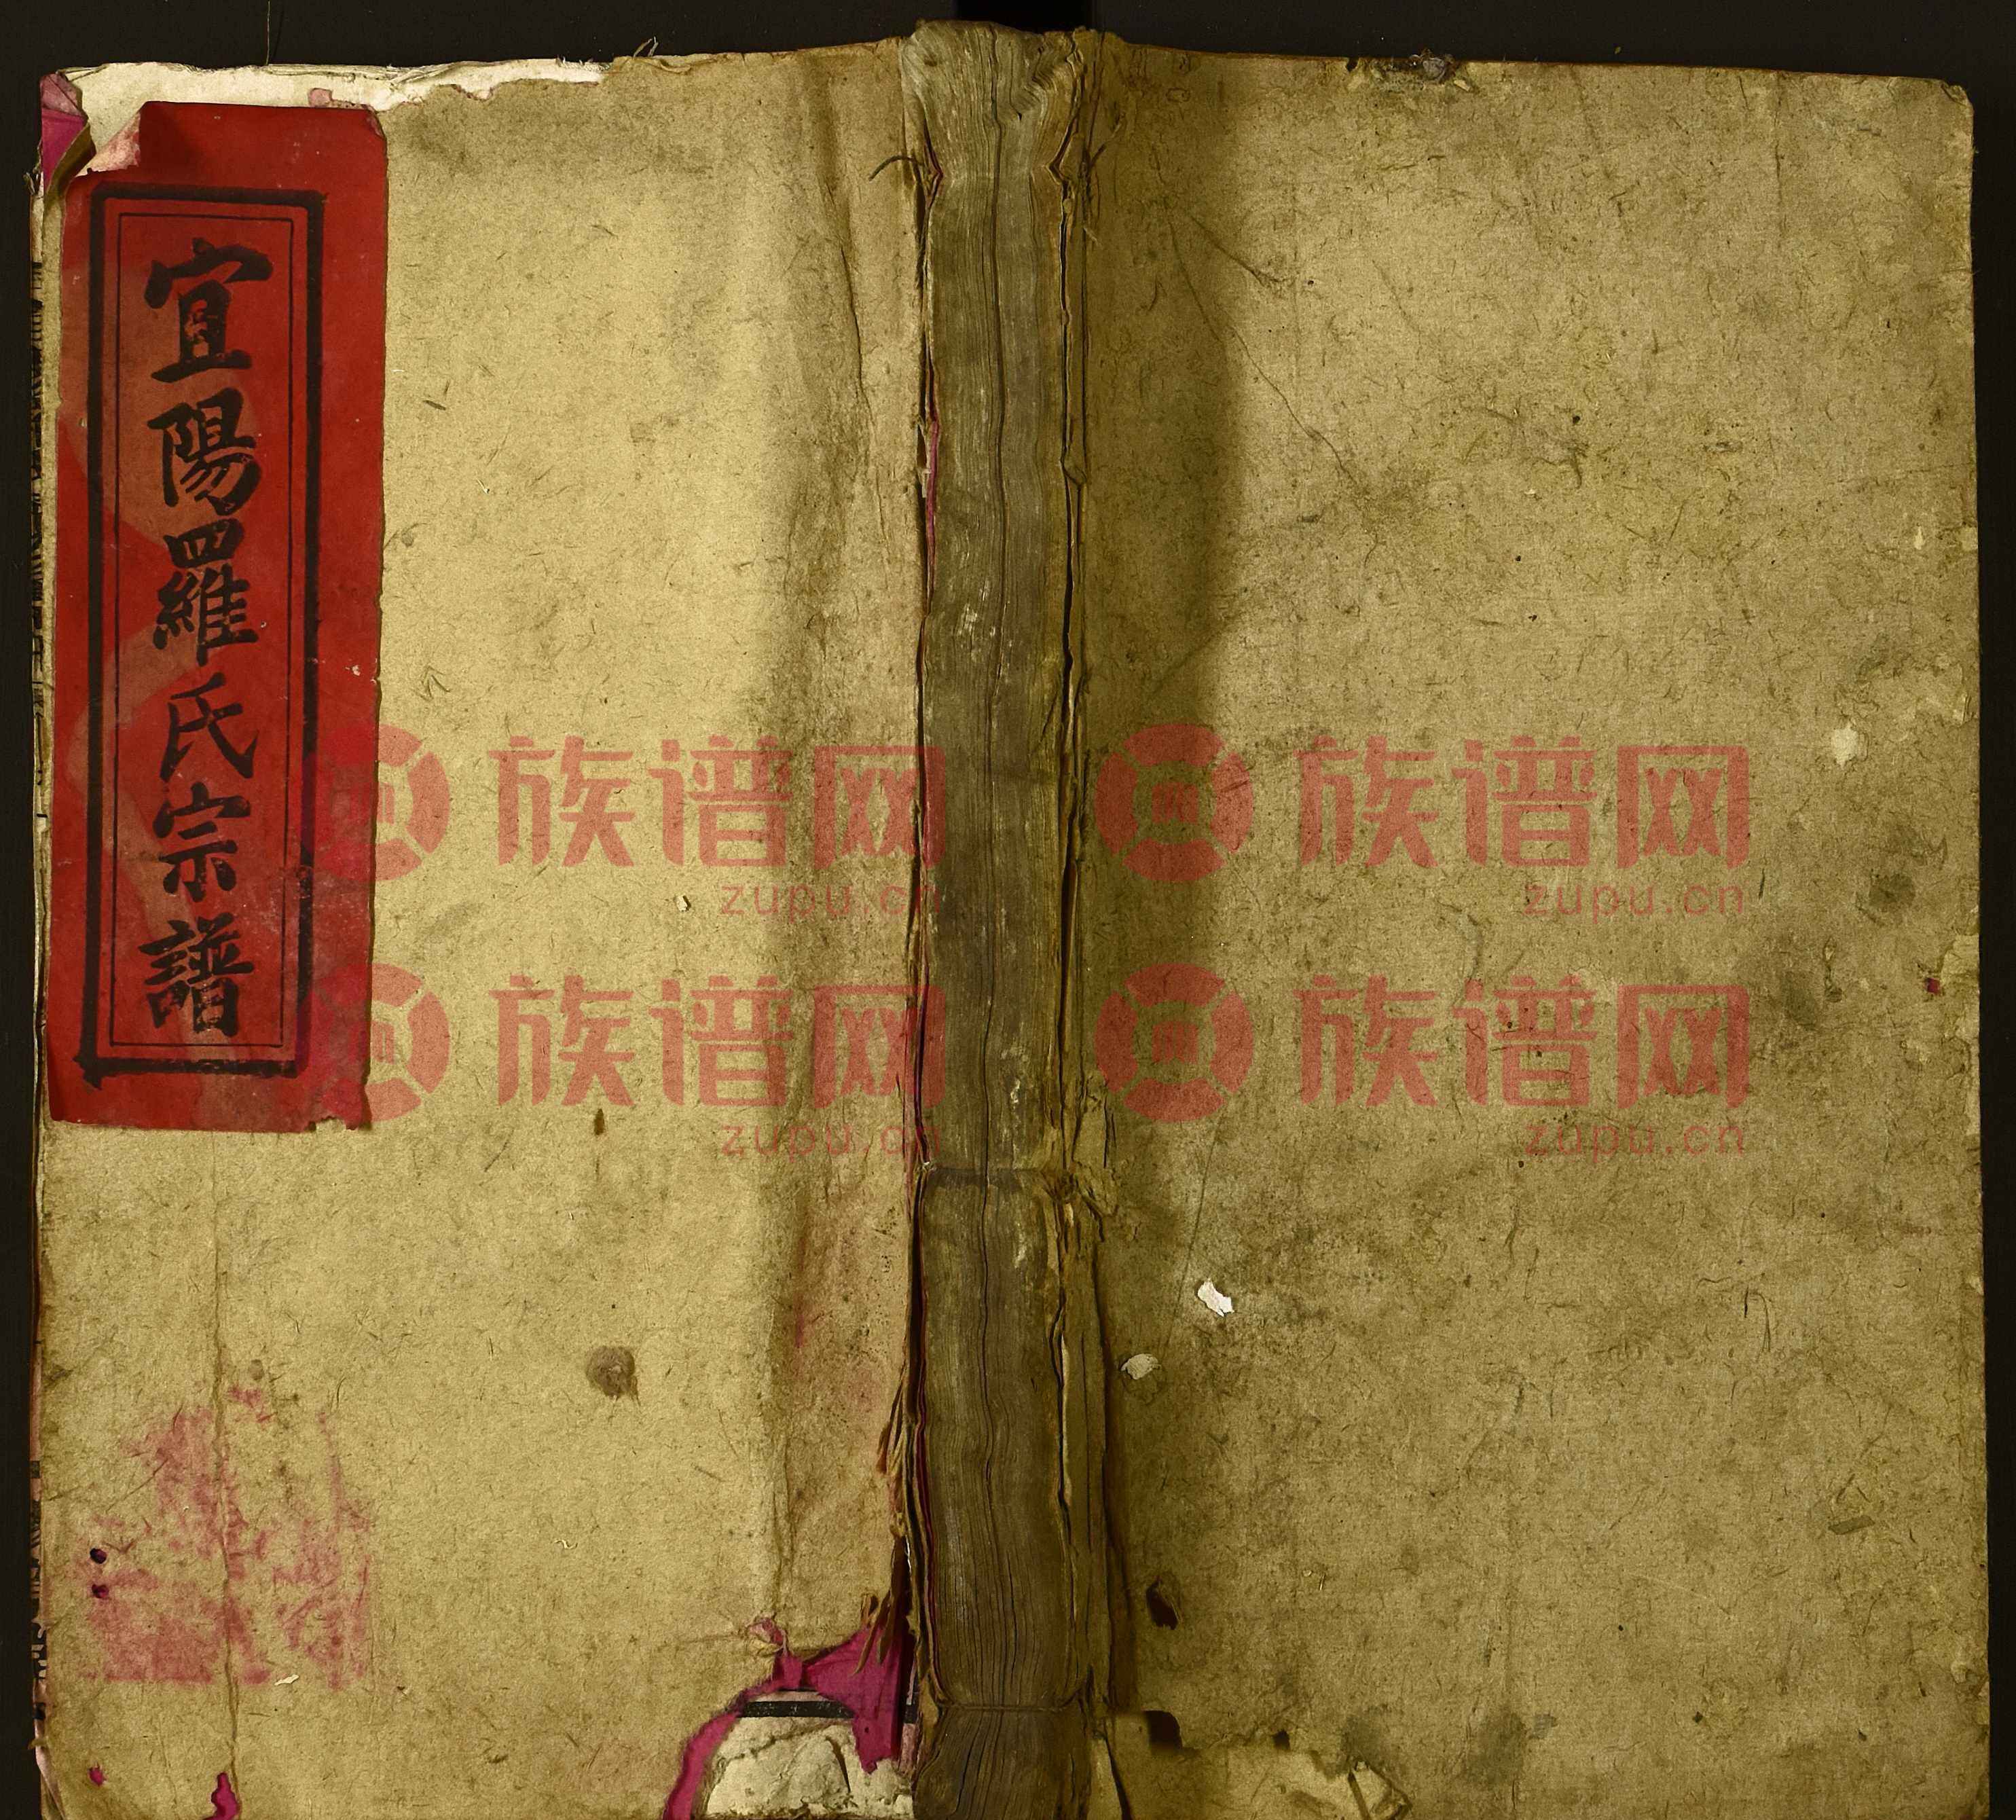 宜陽羅氏宗譜
族谱网
zupu.cn
族谱网
zupu.cn
族谱网
zupu.cn
族谱网
zupu.cn